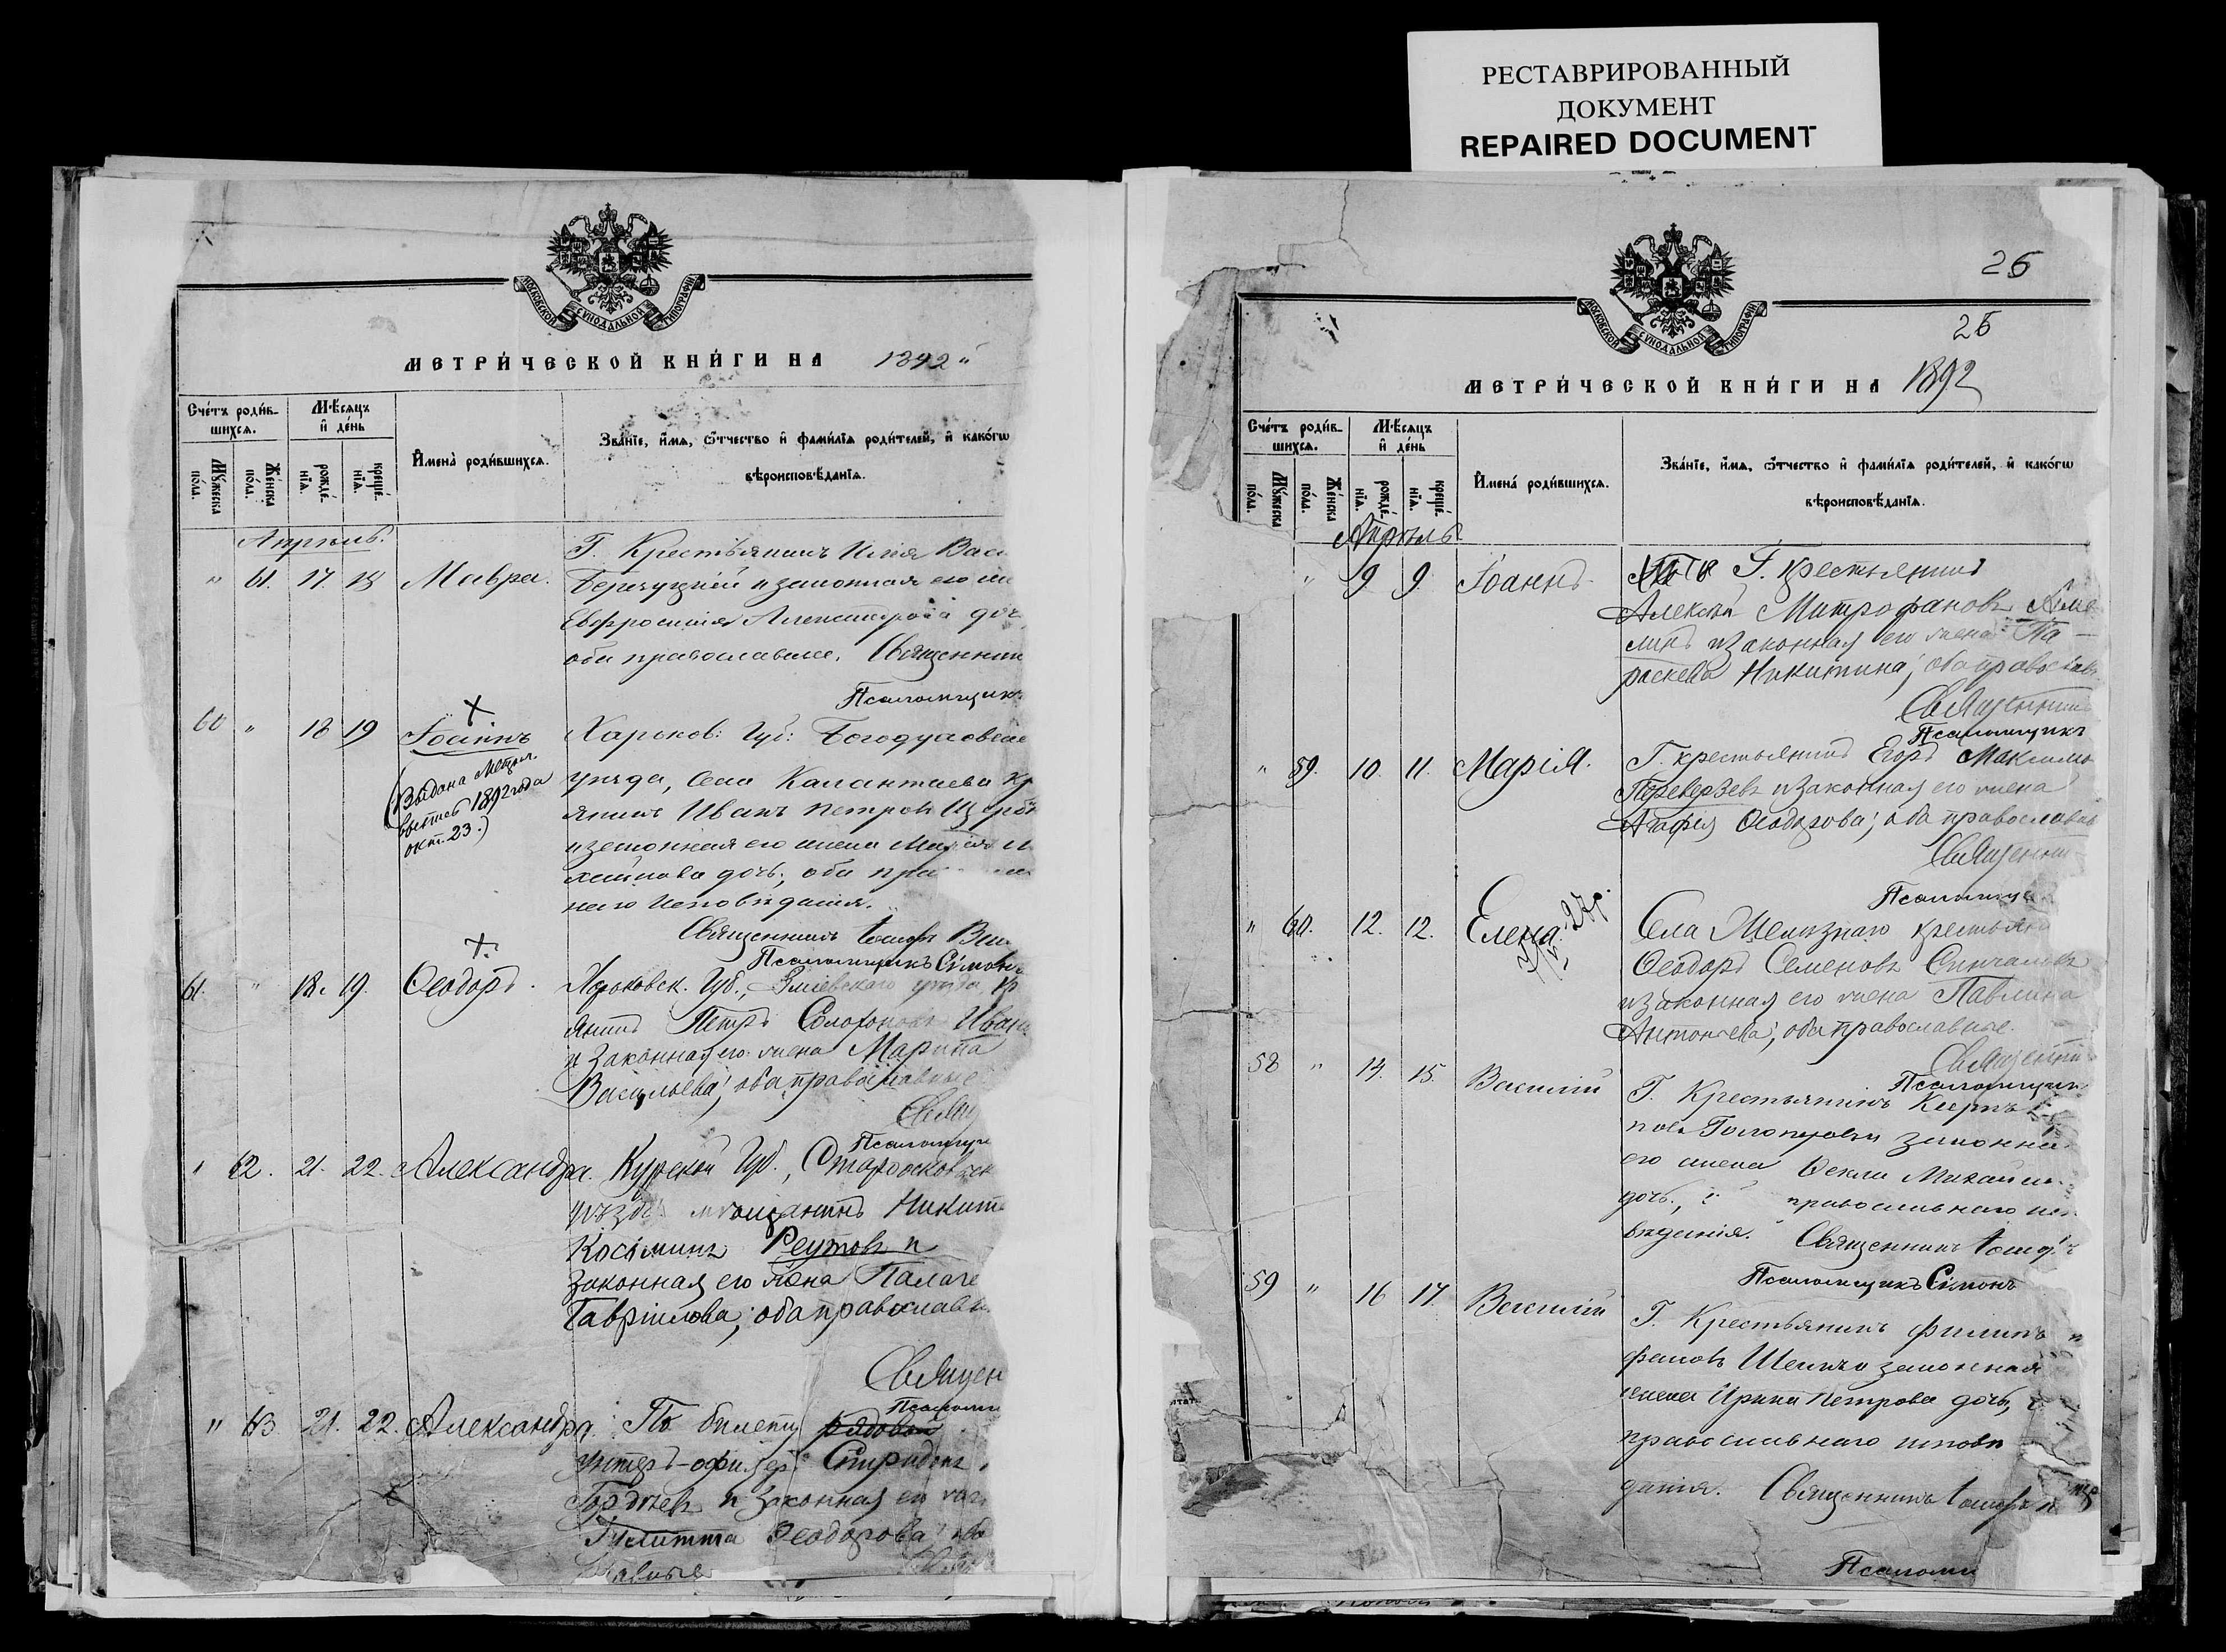 РЕСТАВРИРОВАННЫЙ
ДОКУМЕНТ
REPAIRED DOCUMENT
МОСКОВСКОЙ СѴНОДАЛЬНОЙ ТИПОГРАФІИ
МЕТРИ́ЧЕСКОЙ КНИ́ГИ НА 1892
Сче́тъ роди́в-
шихся.
Мѣсяцъ
и҆ де́нь
Му́жеска по́ла.
Же́нска по́ла.
рожде́нія.
креще́нія.
И҆мена̀ роди́вшихся.
Зва́нїе, и҆́мя, ѻ҆́тчество и҆ фами́лїя роди́телей, и҆ како́гѡ
вѣроисповѣ́данїя.
Апрѣль.
" 61. 17. 18 Мавра.
Г. Крестьянинъ Илія Васи
и законная его
Евфросинія Александрова доч
оба православные. Священник
Псаломщик
60 " 18 19 Іоаннъ
(Выдана Метрич.
1892 года
окт. 23.)
Харьков: Губ: Богодуховска
уѣзда, Села Калантаева кр
янинъ Иванъ Петровъ
и законная его жена Марія
хайлова дочь, оба пра
наго исповѣданія.
Священникъ Іосифъ
Псаломщикъ Симонъ
61. " 18. 19. Ѳеодоръ.
Харьковск. Губ., Зміевскаго уѣзда, кр
янинъ Петръ Иван
и законная его жена Марина
Васильева, оба православные
Свящ
Псаломщи
" 62. 21. 22. Александра.
Курской Губ., Старооскольск
уѣзда мѣщанинъ Никит
Косминъ Реутовъ и
законная его жена Палаге
Гавріилова; оба православн
Священ
Псаломщ
" 63 21. 22. Александра.
По билету рядовой
унтеръ-офицеръ Спиридонъ
Гордѣевъ и законная его жена
Іулитта Ѳеодорова; оба
славные
26
МОСКОВСКОЙ СѴНОДАЛЬНОЙ ТИПОГРАФІИ
26
МЕТРИ́ЧЕСКОЙ КНИ́ГИ НА 1892
Сче́тъ роди́в-
шихся.
Мѣсяцъ
и҆ де́нь
Му́жеска по́ла.
Же́нска по́ла.
рожде́нія.
креще́нія.
И҆мена́ роди́вшихся.
Зва́нїе, и҆́мя, ѻ҆́тчество и҆ фами́лїя роди́телей, и҆ како́гѡ
вѣроисповѣ́данїя.
Апрѣль
" 9 9. Іоаннъ
Г. Крестьянинъ
Алексѣй Митрофановъ
и законная его жена Па-
раскева Никитина; оба православ
Священник
Псаломщикъ
" 59. 10. 11. Марія.
Г. крестьянинъ Егоръ Максимо
Переверзевъ и законная его жена
Агафія Ѳеодорова; оба православн
Священни
Псаломщи
" 60. 12. 12. Елена.
Села Желѣзнаго крестьян
Ѳеодоръ Семеновъ
и законная его жена Павлина
Антоніева; оба православные.
Священни
Псаломщик
58 " 14. 15. Василій
Г. Крестьянинъ
законна
его жена Ѳекла Михайло
дочь, православнаго ис
вѣданія. Священникъ Іосифъ
Псаломщикъ Симонъ
59 " 16 17. Василій
Г. Крестьянинъ Филипъ
фановъ законная
жена Ирина Петрова дочь,
православнаго исповѣ
данія. Священникъ Іосифъ
Псаломщ